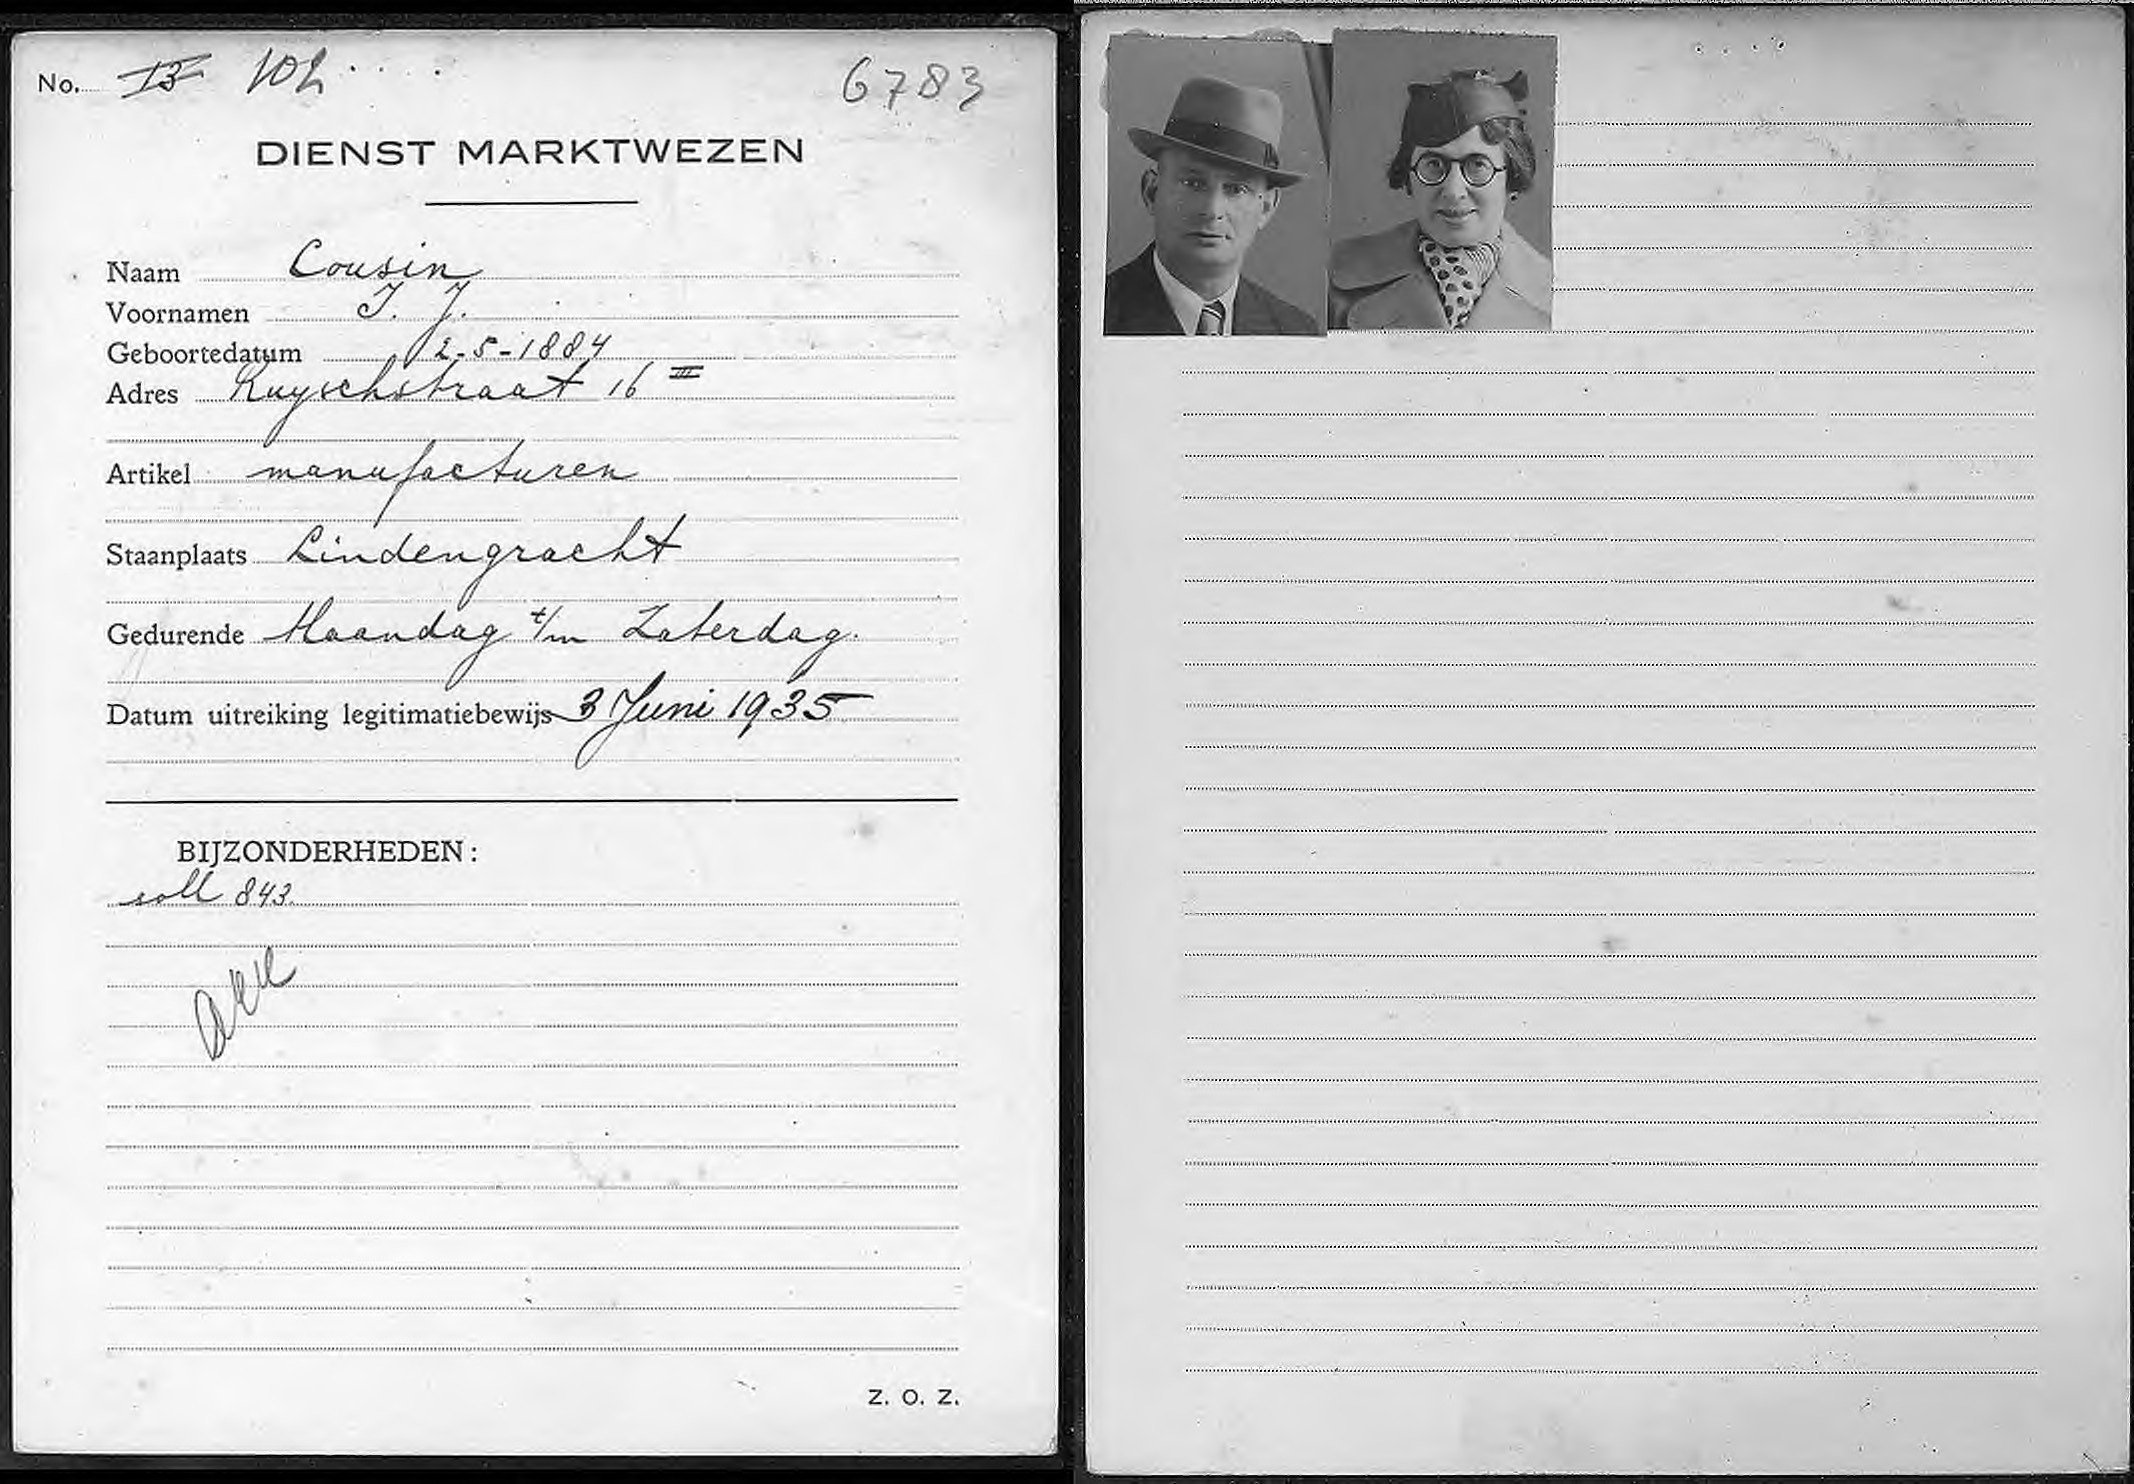 No. 13 102
6783
DIENST MARKTWEZEN
Naam Cousin
Voornamen I. J.
Geboortedatum 12-5-1884
Adres Ruyschstraat 16 III
Artikel manufacturen
Staanplaats Lindengracht
Gedurende Maandag t/m Zaterdag.
Datum uitreiking legitimatiebewijs 3 Juni 1935
BIJZONDERHEDEN:
soll 843.
Z. O. Z.